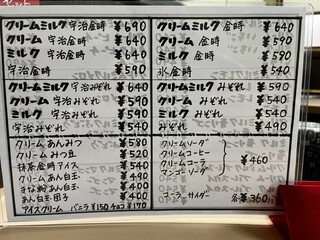 クリームミルク宇治金時 ¥690
クリーム 宇治金時 ¥640
ミルク 宇治金時 ¥640
宇治金時 ¥590
クリームミルク 金時 ¥640
クリーム 金時 ¥590
ミルク 金時 ¥590
氷金時 ¥540
クリームミルク宇治みぞれ ¥640
クリーム 宇治みぞれ ¥590
ミルク 宇治みぞれ ¥590
宇治みぞれ ¥540
クリームミルクみぞれ ¥590
クリーム みぞれ ¥540
ミルク みぞれ ¥540
みぞれ ¥490
クリームあんみつ ¥580
クリームみつ豆 ¥520
抹茶金時アイス ¥540
クリームあん白玉 ¥490
きな粉あん白玉 ¥400
あん白玉・団子 ¥400
アイスクリーム バニラ¥150 チョコ¥170
クリームソーダ
クリームコーヒー
クリームコーラ
マンゴーソーダ
¥460
コーラ・サイダー 各¥360